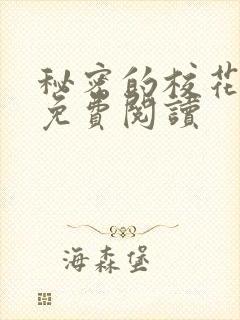 秘密的校花
免費閱讀
海森堡